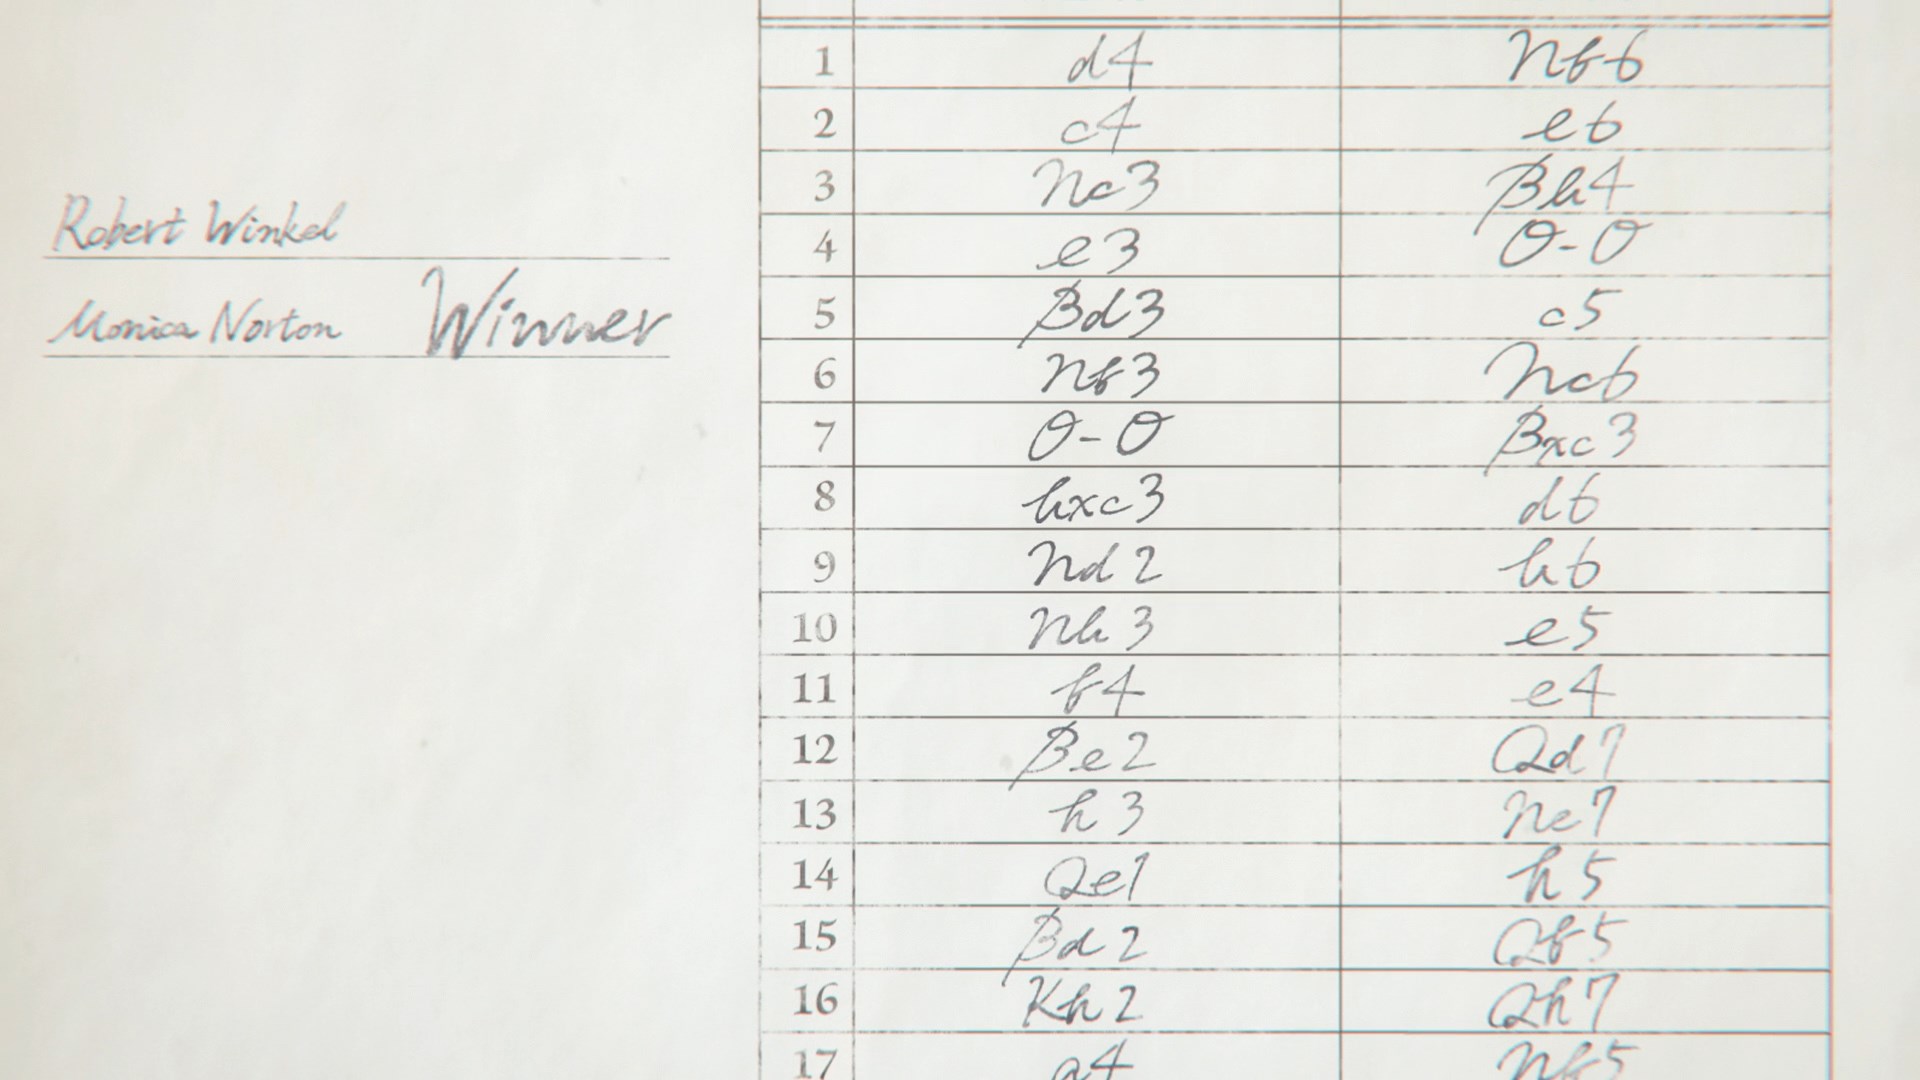 1 d4 Nf6
2 c4 e6
3 Nc3 Bb4
4 e3 O-O
5 Bd3 c5
6 Nf3 Nc6
7 O-O Bxc3
8 bxc3 d6
9 Nd2 b6
10 Nb3 e5
11 f4 e4
12 Be2 Qd7
13 h3 Ne7
14 Qe1 h5
15 Bd2 Qf5
16 Kh2 Qh7
17 a4 Nf5
Robert Winkel
Monica Norton Winner